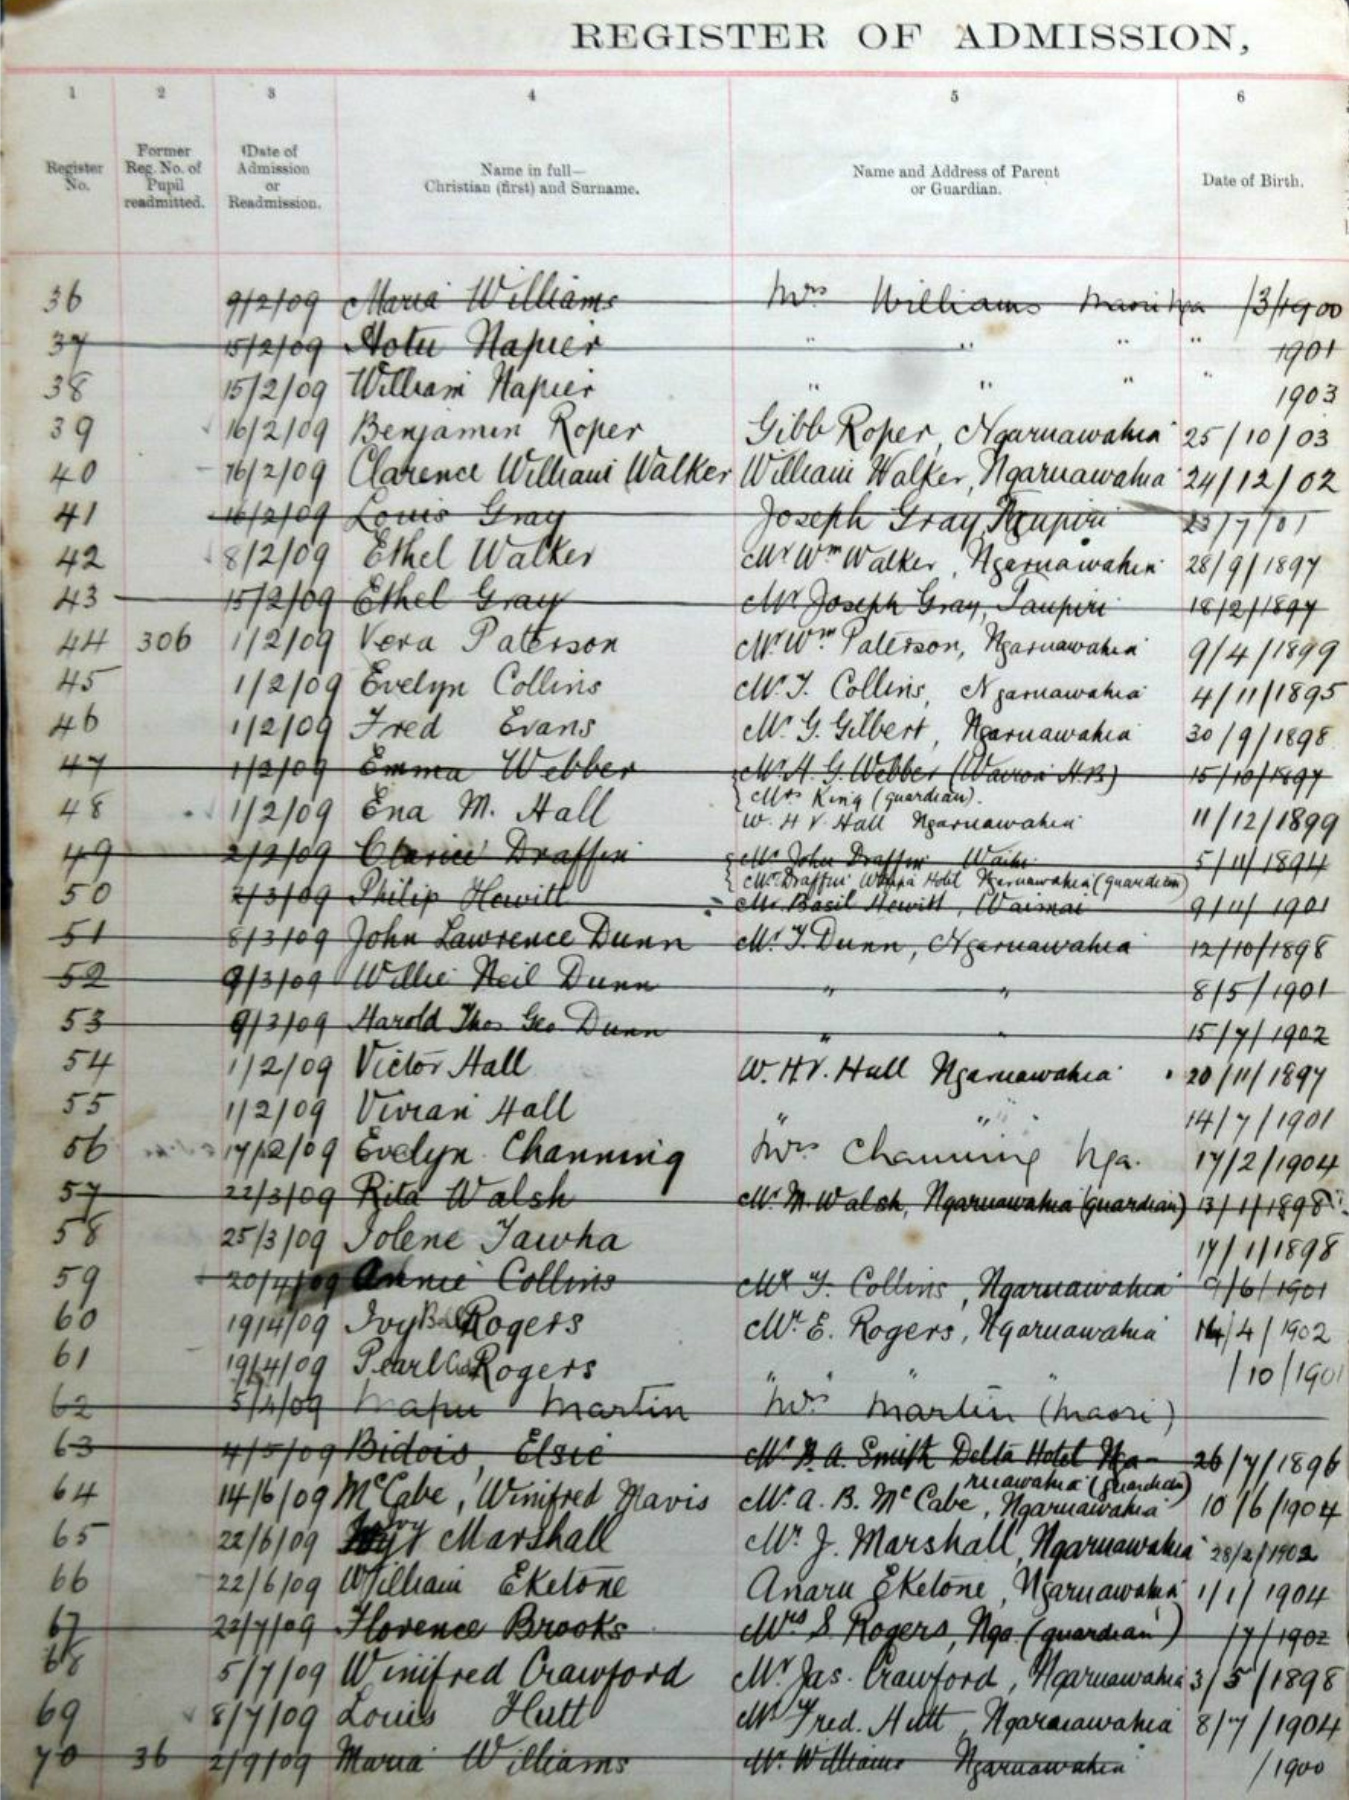 REGISTER OF ADMISSION,
1 2 3 4 5 6
Register No. Former Reg. No. of Pupil readmitted. Date of Admission or Readmission. Name in full— Christian (first) and Surname. Name and Address of Parent or Guardian. Date of Birth.
36 9/2/09 Maria Williams Mrs Williams /3/1900
37 15/2/09 Hotu Napier " " " " 1901
38 15/2/09 William Napier " " " " 1903
39 16/2/09 Benjamin Roper Gibb Roper, Ngaruawahia 25/10/03
40 16/2/09 Clarence William Walker William Walker, Ngaruawahia 24/12/02
41 16/2/09 Louis Gray Joseph Gray, Taupiri 23/7/01
42 8/2/09 Ethel Walker Mr Wm Walker, Ngaruawahia 28/9/1897
43 15/2/09 Ethel Gray Mr Joseph Gray, Taupiri 18/2/1897
44 306 1/2/09 Vera Paterson Mr Wm Paterson, Ngaruawahia 9/4/1899
45 1/2/09 Evelyn Collins Mr T. Collins, Ngaruawahia 4/11/1895
46 1/2/09 Fred Evans Mr G. Gilbert, Ngaruawahia 30/9/1898
47 1/2/09 Emma Webber Mr A. G. Webber (Wairoa H.B.) 15/10/1897
Mrs King (guardian).
48 1/2/09 Ena M. Hall W. H V Hall Ngaruawahia 11/12/1899
49 2/2/09 Clarice Draffin Mr John Draffin Waihi 5/11/1894
Mr Draffin Waipa Hotel Ngaruawahia (guardian)
50 2/3/09 Philip Hewitt Mr Basil Hewitt, 9/11/1901
51 8/3/09 John Lawrence Dunn Mr T. Dunn, Ngaruawahia 12/10/1898
52 9/3/09 Willie Neil Dunn " " 8/5/1901
53 9/3/09 Harold Thos Geo Dunn " " 15/7/1902
54 1/2/09 Victor Hall W. H V. Hall Ngaruawahia 20/11/1897
55 1/2/09 Vivian Hall " " 14/7/1901
56 17/2/09 Evelyn Channing Mrs Channing Nga. 17/2/1904
57 22/3/09 Rita Walsh Mr M. Walsh, Ngaruawahia (guardian) 13/1/1898
58 25/3/09 Iolene Tawha 17/1/1898
59 20/4/09 Annie Collins Mr T. Collins, Ngaruawahia 9/6/1901
60 19/4/09 Ivy Rogers Mr E. Rogers, Ngaruawahia 14/4/1902
61 19/4/09 Pearl Rogers " " /10/1901
62 5/4/09 Mapu Martin Mrs Martin (Maori)
63 4/5/09 Bidois, Elsie Mr B. A. Smith Delta Hotel Nga-
ruawahia (guardian) 26/7/1896
64 14/6/09 McCabe, Winifred Mavis Mr A. B. McCabe, Ngaruawahia 10/6/1904
65 22/6/09 Ivy Marshall Mr J. Marshall, Ngaruawahia 28/2/1902
66 22/6/09 William Eketone Anaru Eketone, Ngaruawahia 1/1/1904
67 22/7/09 Florence Brooks Mrs S Rogers, Nga. (guardian) /7/1902
68 5/7/09 Winifred Crawford Mr Jas. Crawford, Ngaruawahia 3/5/1898
69 8/7/09 Louis Hutt Mr Fred. Hutt, Ngaruawahia 8/7/1904
70 36 2/9/09 Maria Williams Mr Williams Ngaruawahia /1900